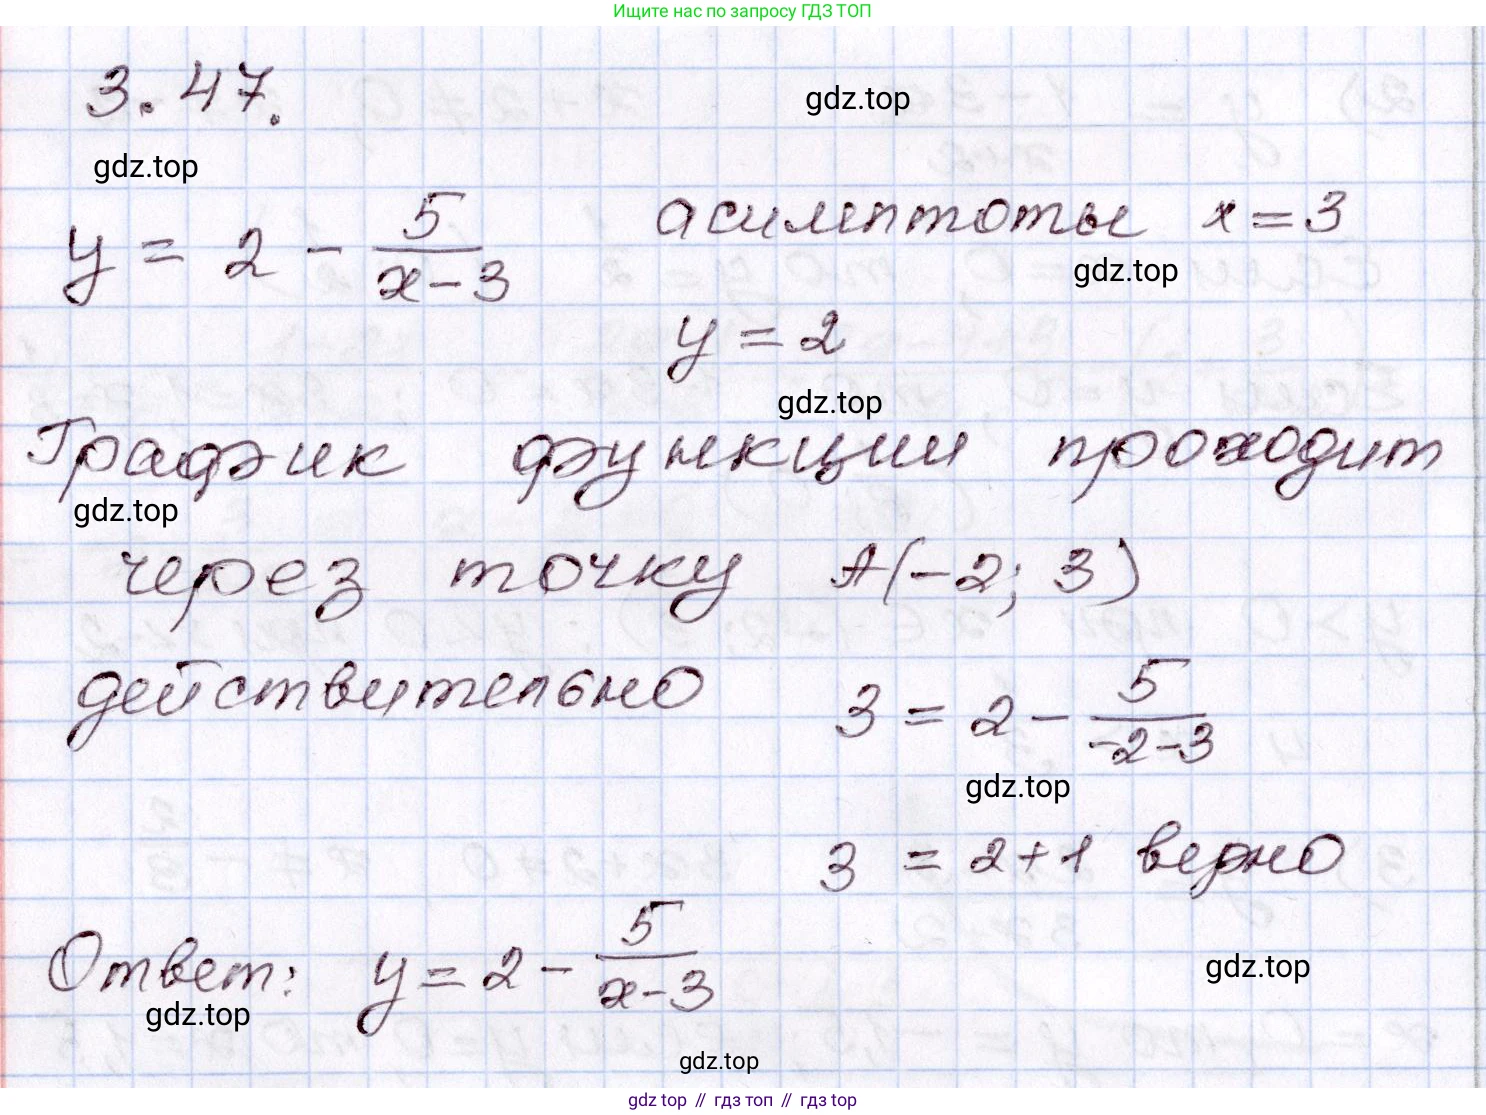 Ищите нас по запросу ГДЗ ТОП
3.47.
gdz.top
gdz.top
y = 2 - 5/(x-3) асимптоты x=3
gdz.top
y = 2
gdz.top
График функции проходит
gdz.top
через точку A(-2; 3)
действительно 3 = 2 - 5/(-2-3)
gdz.top
3 = 2+1 верно
Ответ: y = 2 - 5/(x-3)
gdz.top
gdz.top
gdz.top
gdz top // гдз топ // гдз top